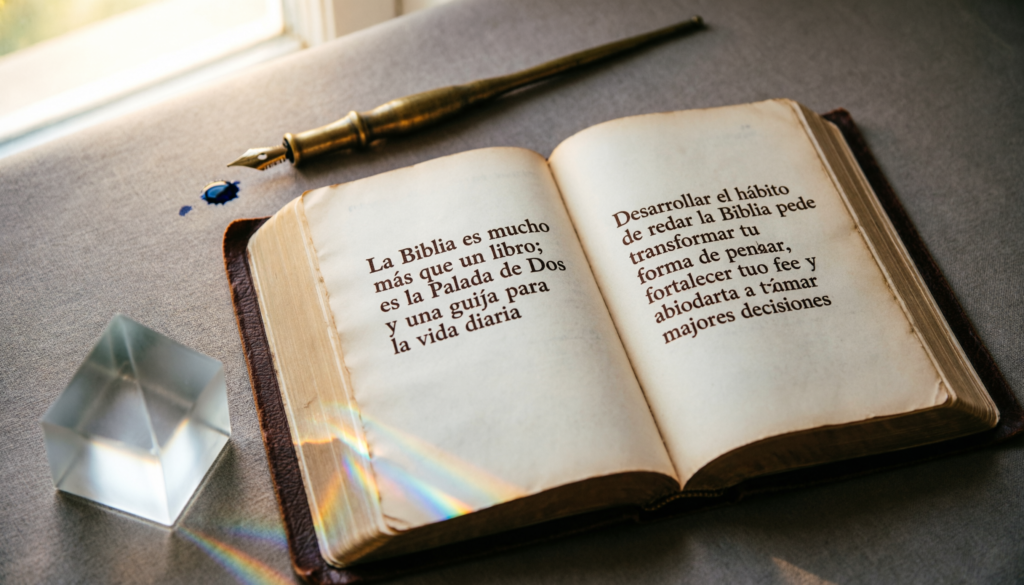 La Biblia es mucho
más que un libro;
es la Palada de Dos
y una guija para
la vida diaria
Desarrollar el hábito
de redar la Biblia pede
transformar tu
forma de penżar,
fortalecer tuo fee y
abiodarta a tómar
majores decisiones